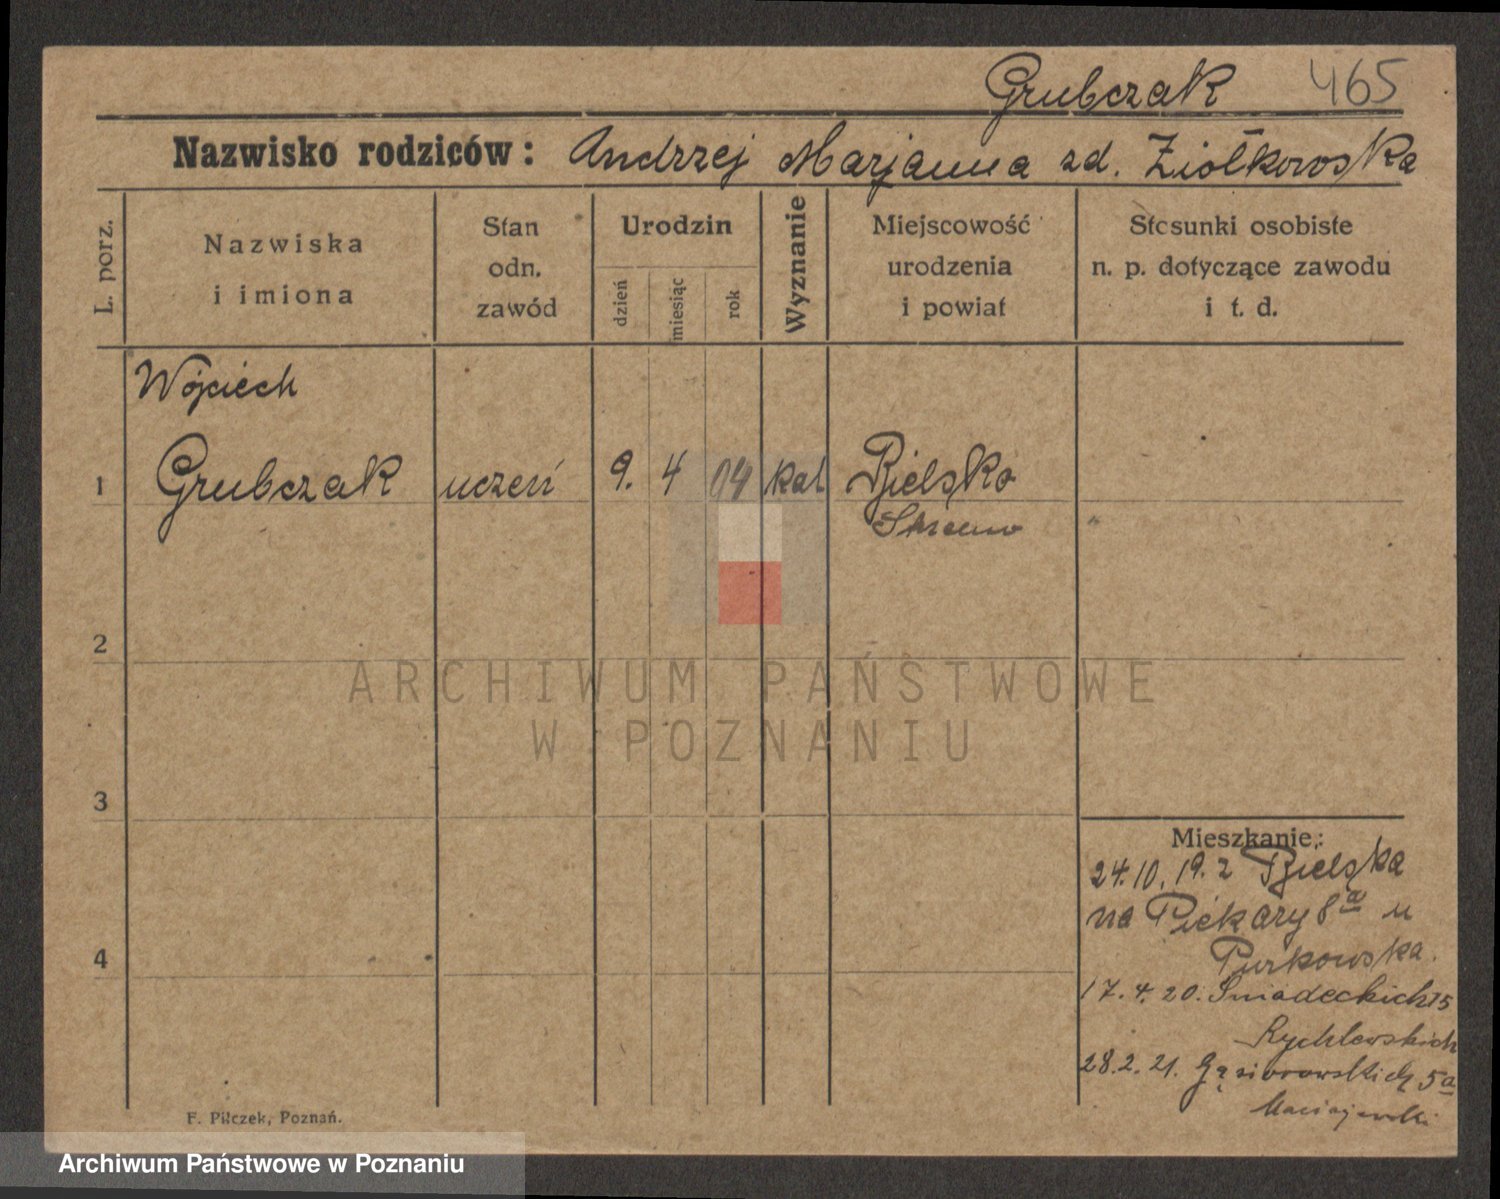 Grubczak 465
Nazwisko rodziców: Andrzej Marjanna zd. Ziółkowska
L. porz.
Nazwiska i imiona
Stan odn. zawód
Urodzin
dzień
miesiąc
rok
Wyznanie
Miejscowość urodzenia i powiat
Stosunki osobiste n. p. dotyczące zawodu i t. d.
Wojciech
1 Grubczak uczeń 9. 4 04 kat Bielsko
Śrem
2
3
4
Mieszkanie:
24.10.19. z Bielska
na Piekary 8a u
Purkowska.
17.4.20. Śniadeckich 15
Rychlewskich
28.2.21. Gąsiorowskich 5a
Maciejewski
F. Pilczek, Poznań.
ARCHIWUM PAŃSTWOWE
W POZNANIU
Archiwum Państwowe w Poznaniu